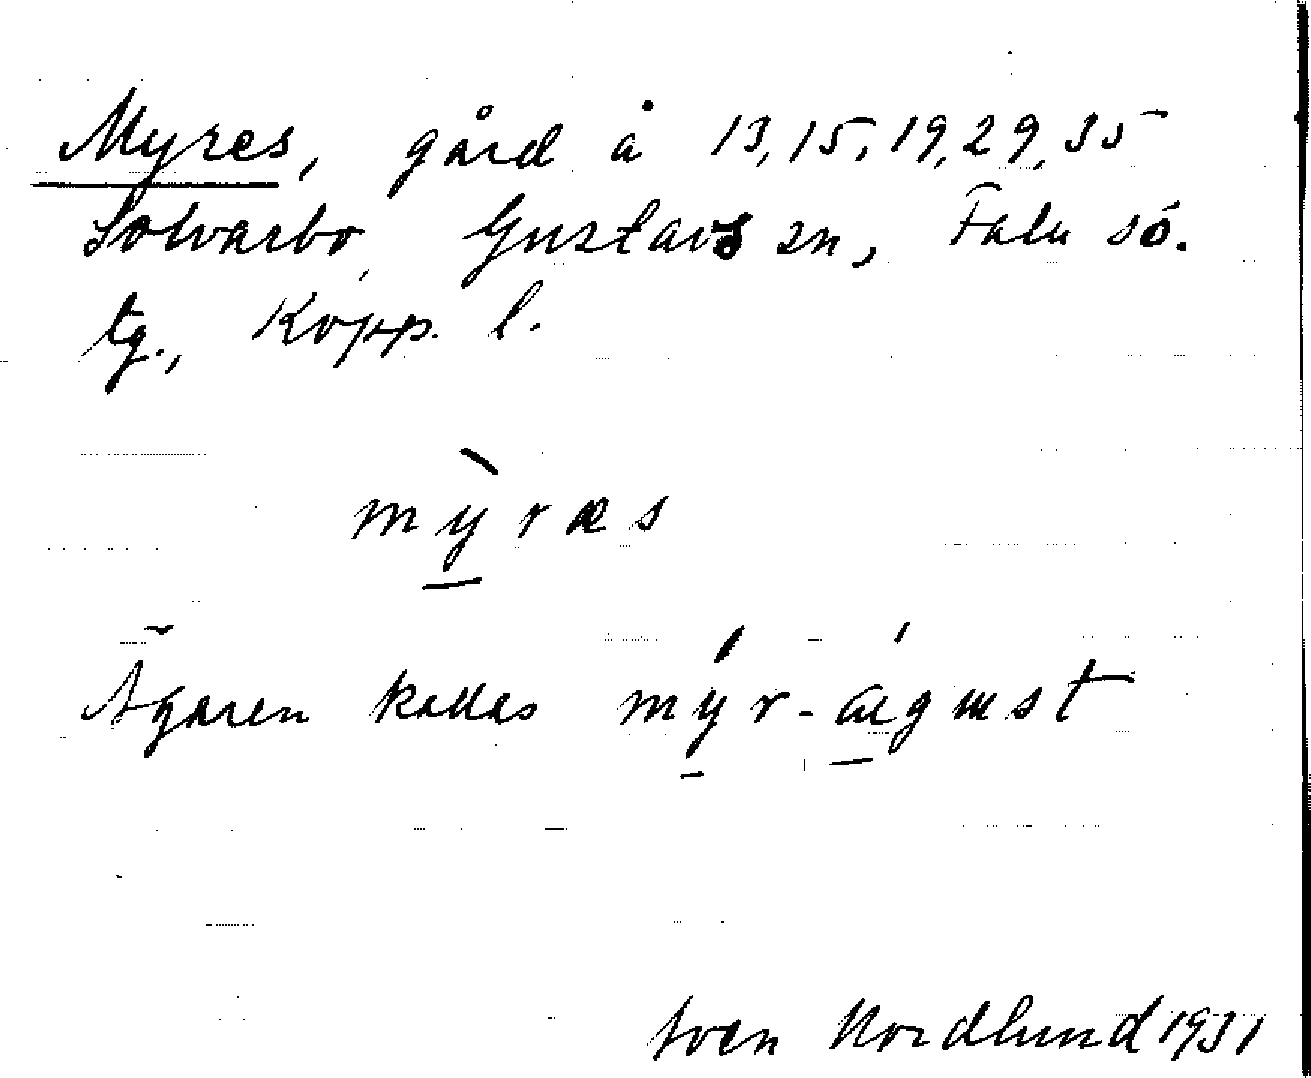 Myres, gård å 13, 15, 19, 29, 35
Solvarbo, Gustavs sn, Falu sö.
tg., Kopp. l.
mỳræs
Ägaren kallas mýr-áugust
Sven Nordlund 1931